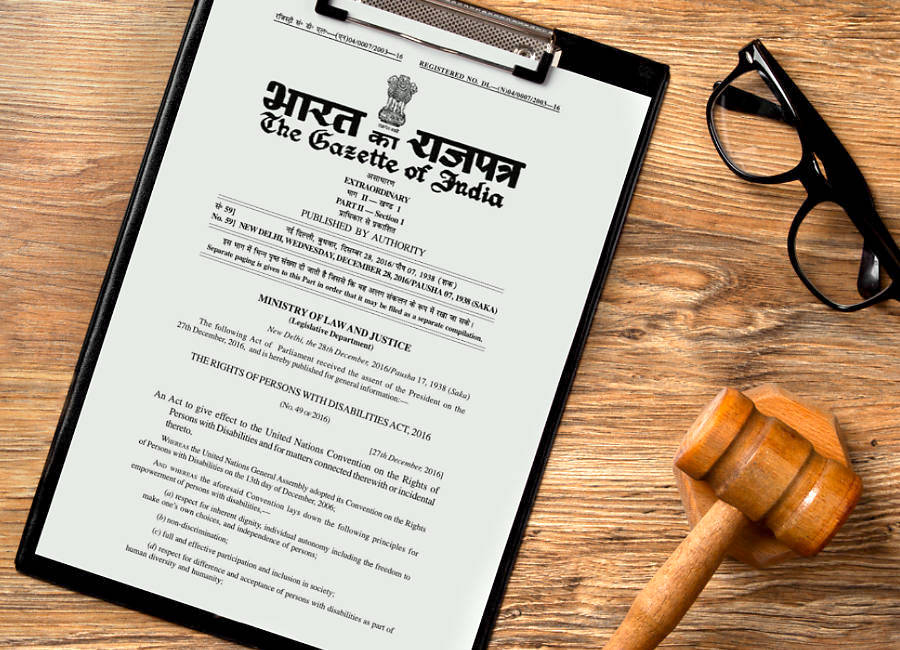 रजिस्ट्री सं० डी० एल०—(एन)04/0007/2003—16
REGISTERED NO. DL—(N)04/0007/2003—16
भारत का राजपत्र
The Gazette of India
असाधारण
EXTRAORDINARY
भाग II — खण्ड 1
PART II — Section 1
प्राधिकार से प्रकाशित
PUBLISHED BY AUTHORITY
सं० 59] नई दिल्ली, बुधवार, दिसम्बर 28, 2016/पौष 07, 1938 (शक)
No. 59] NEW DELHI, WEDNESDAY, DECEMBER 28, 2016/PAUSHA 07, 1938 (SAKA)
इस भाग में भिन्न पृष्ठ संख्या दी जाती है जिससे कि यह अलग संकलन के रूप में रखा जा सके।
Separate paging is given to this Part in order that it may be filed as a separate compilation.
MINISTRY OF LAW AND JUSTICE
(Legislative Department)
New Delhi, the 28th December, 2016/Pausha 17, 1938 (Saka)
The following Act of Parliament received the assent of the President on the
27th December, 2016, and is hereby published for general information:—
THE RIGHTS OF PERSONS WITH DISABILITIES ACT, 2016
(No. 49 OF 2016)
[27th December, 2016]
An Act to give effect to the United Nations Convention on the Rights of
Persons with Disabilities and for matters connected therewith or incidental
thereto.
WHEREAS the United Nations General Assembly adopted its Convention on the Rights
of Persons with Disabilities on the 13th day of December, 2006;
AND WHEREAS the aforesaid Convention lays down the following principles for
empowerment of persons with disabilities,—
(a) respect for inherent dignity, individual autonomy including the freedom to
make one's own choices, and independence of persons;
(b) non-discrimination;
(c) full and effective participation and inclusion in society;
(d) respect for difference and acceptance of persons with disabilities as part of
human diversity and humanity;